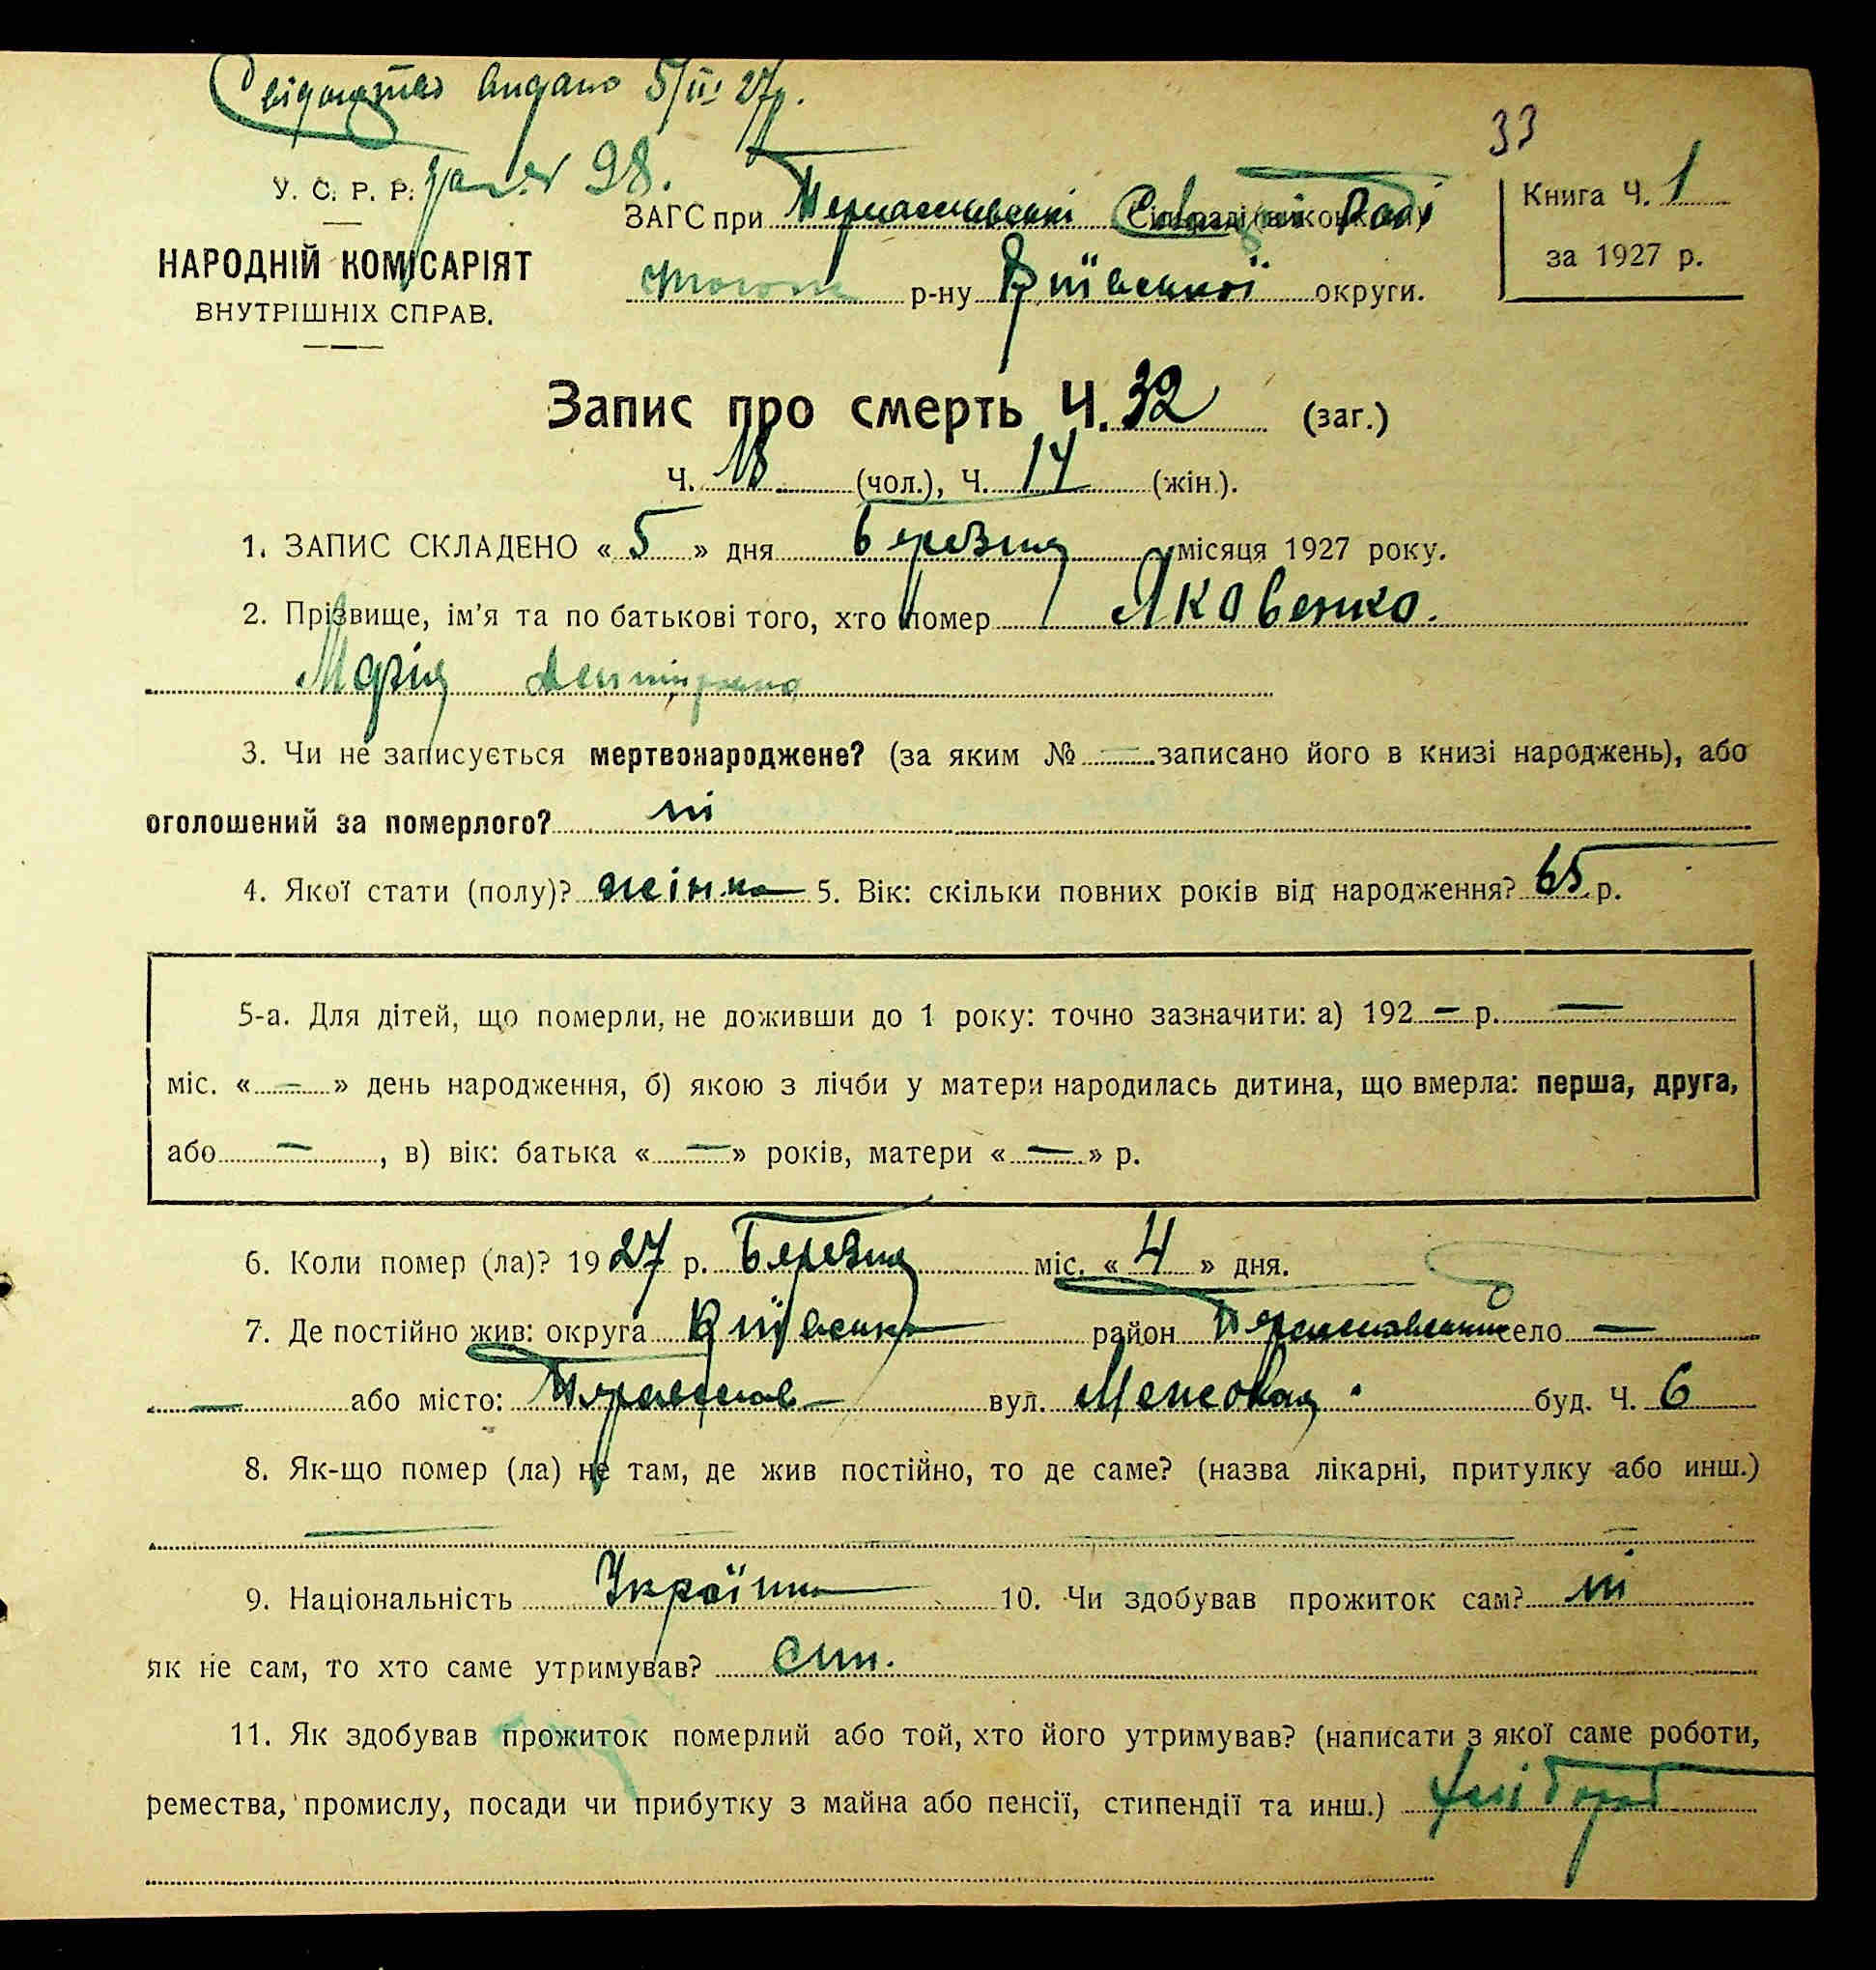 Свідоцтво видано 5/III 27р.
за № 98.
33
У. С. Р. Р.
НАРОДНІЙ КОМІСАРІЯТ
ВНУТРІШНІХ СПРАВ.
ЗАГС при Раді
р-ну Київської округи.
Книга Ч. 1
за 1927 р.
Запис про смерть Ч. 32 (заг.)
Ч. 18 (чол.), Ч. 14 (жін.).
1. ЗАПИС СКЛАДЕНО « 5 » дня березня місяця 1927 року.
2. Прізвище, ім'я та по батькові того, хто помер Яковенко.
Марія
3. Чи не записується мертвонароджене? (за яким № — записано його в книзі народжень), або
оголошений за померлого? ні
4. Якої стати (полу)? жінка 5. Вік: скільки повних років від народження? 65 р.
5-а. Для дітей, що померли, не доживши до 1 року: точно зазначити: а) 192 — р. —
міс. « — » день народження, б) якою з лічби у матери народилась дитина, що вмерла: перша, друга,
або — , в) вік: батька « — » років, матери « — » р.
6. Коли помер (ла)? 1927 р. Березня міс. « 4 » дня.
7. Де постійно жив: округа Київська район село —
— або місто: вул. Межова буд. Ч. 6
8. Як-що помер (ла) не там, де жив постійно, то де саме? (назва лікарні, притулку або инш.)
—
9. Національність Українка 10. Чи здобував прожиток сам? ні
як не сам, то хто саме утримував? син.
11. Як здобував прожиток померлий або той, хто його утримував? (написати з якої саме роботи,
ремества, промислу, посади чи прибутку з майна або пенсії, стипендії та инш.) хлібороб